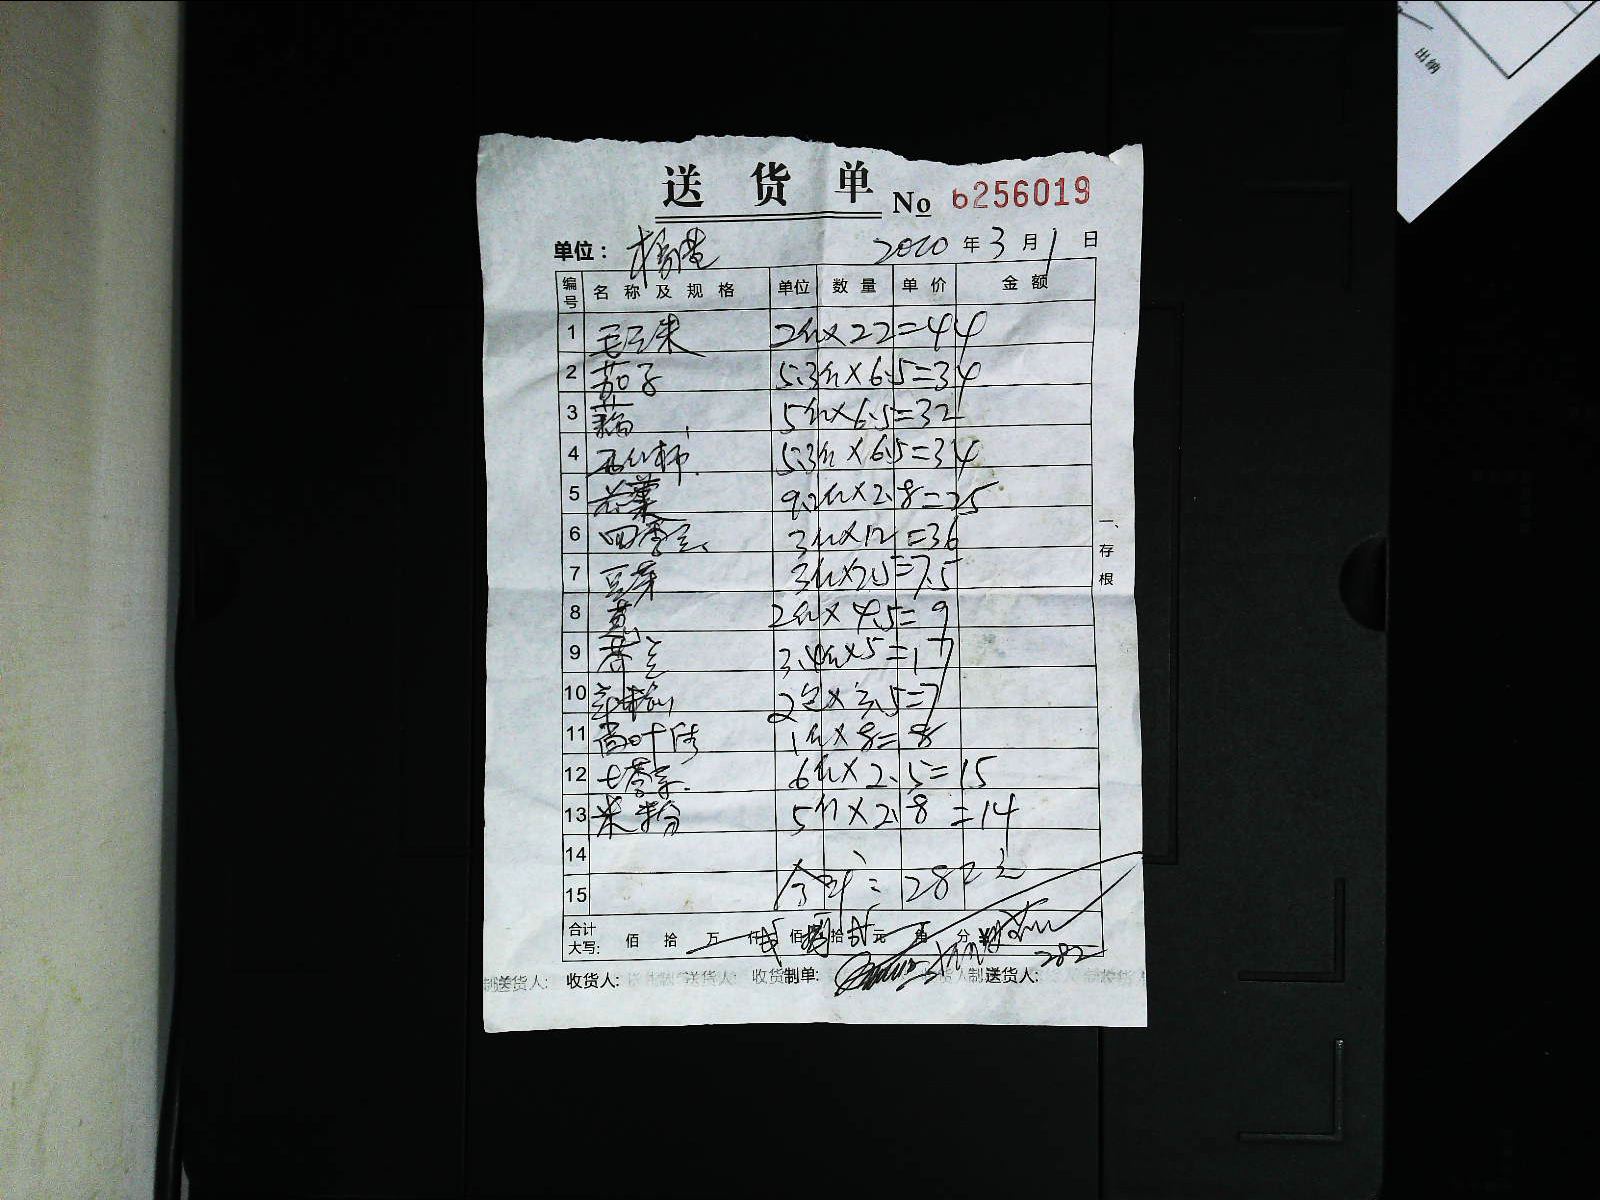 出纳
送 货 单 No 6256019
单位: 2020 年 3 月 1 日
编号 名 称 及 规 格 单位 数 量 单 价 金 额
1 毛豆米 2斤×22=44
2 茄子 5.3斤×6.5=34
3 5斤×6.5=32
4 西红柿 5.3斤×6.5=34
5 9.2斤×2.8=25
6 四季豆 3斤×12=36
7 豆芽 3斤×2.5=7.5
8 2斤×4.5=9
9 3.4斤×5=17
10 2包×3.5=7
11 1斤×8=8
12 6斤×2.5=15
13 米粉 5斤×2.8=14
14
15 合计: 282元
一、存根
合计大写: 佰 拾 万 仟 贰 佰 捌 拾 贰 元 角 分
282
制送货人: 收货人: 送货人: 收货制单: 制送货人: